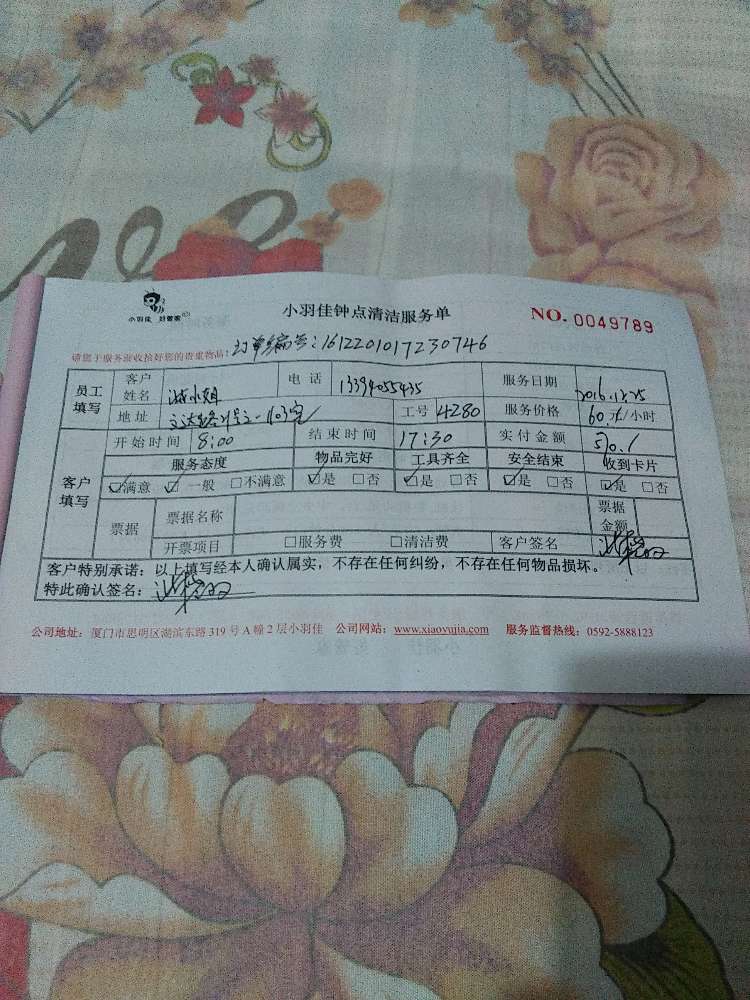 小羽佳 好管家
小羽佳钟点清洁服务单
NO. 0049789
请您于服务前收拾好您的贵重物品: 订单编号:1612201017230746
员工填写 客户姓名 小姐 电话 13394055435 服务日期 2016.12.25
地址 1103室 工号 4280 服务价格 60元/小时
客户填写 开始时间 8:00 结束时间 17:30 实付金额 570.
服务态度 物品完好 工具齐全 安全结束 收到卡片
☑满意 ☑一般 □不满意 ☑是 □否 ☑是 □否 ☑是 □否 ☑是 □否
票据 票据名称 票据金额
开票项目 □服务费 □清洁费 客户签名
客户特别承诺: 以上填写经本人确认属实,不存在任何纠纷,不存在任何物品损坏。
特此确认签名:
公司地址: 厦门市思明区湖滨东路 319 号 A 幢 2 层小羽佳 公司网站: www.xiaoyujia.com 服务监督热线: 0592-5888123